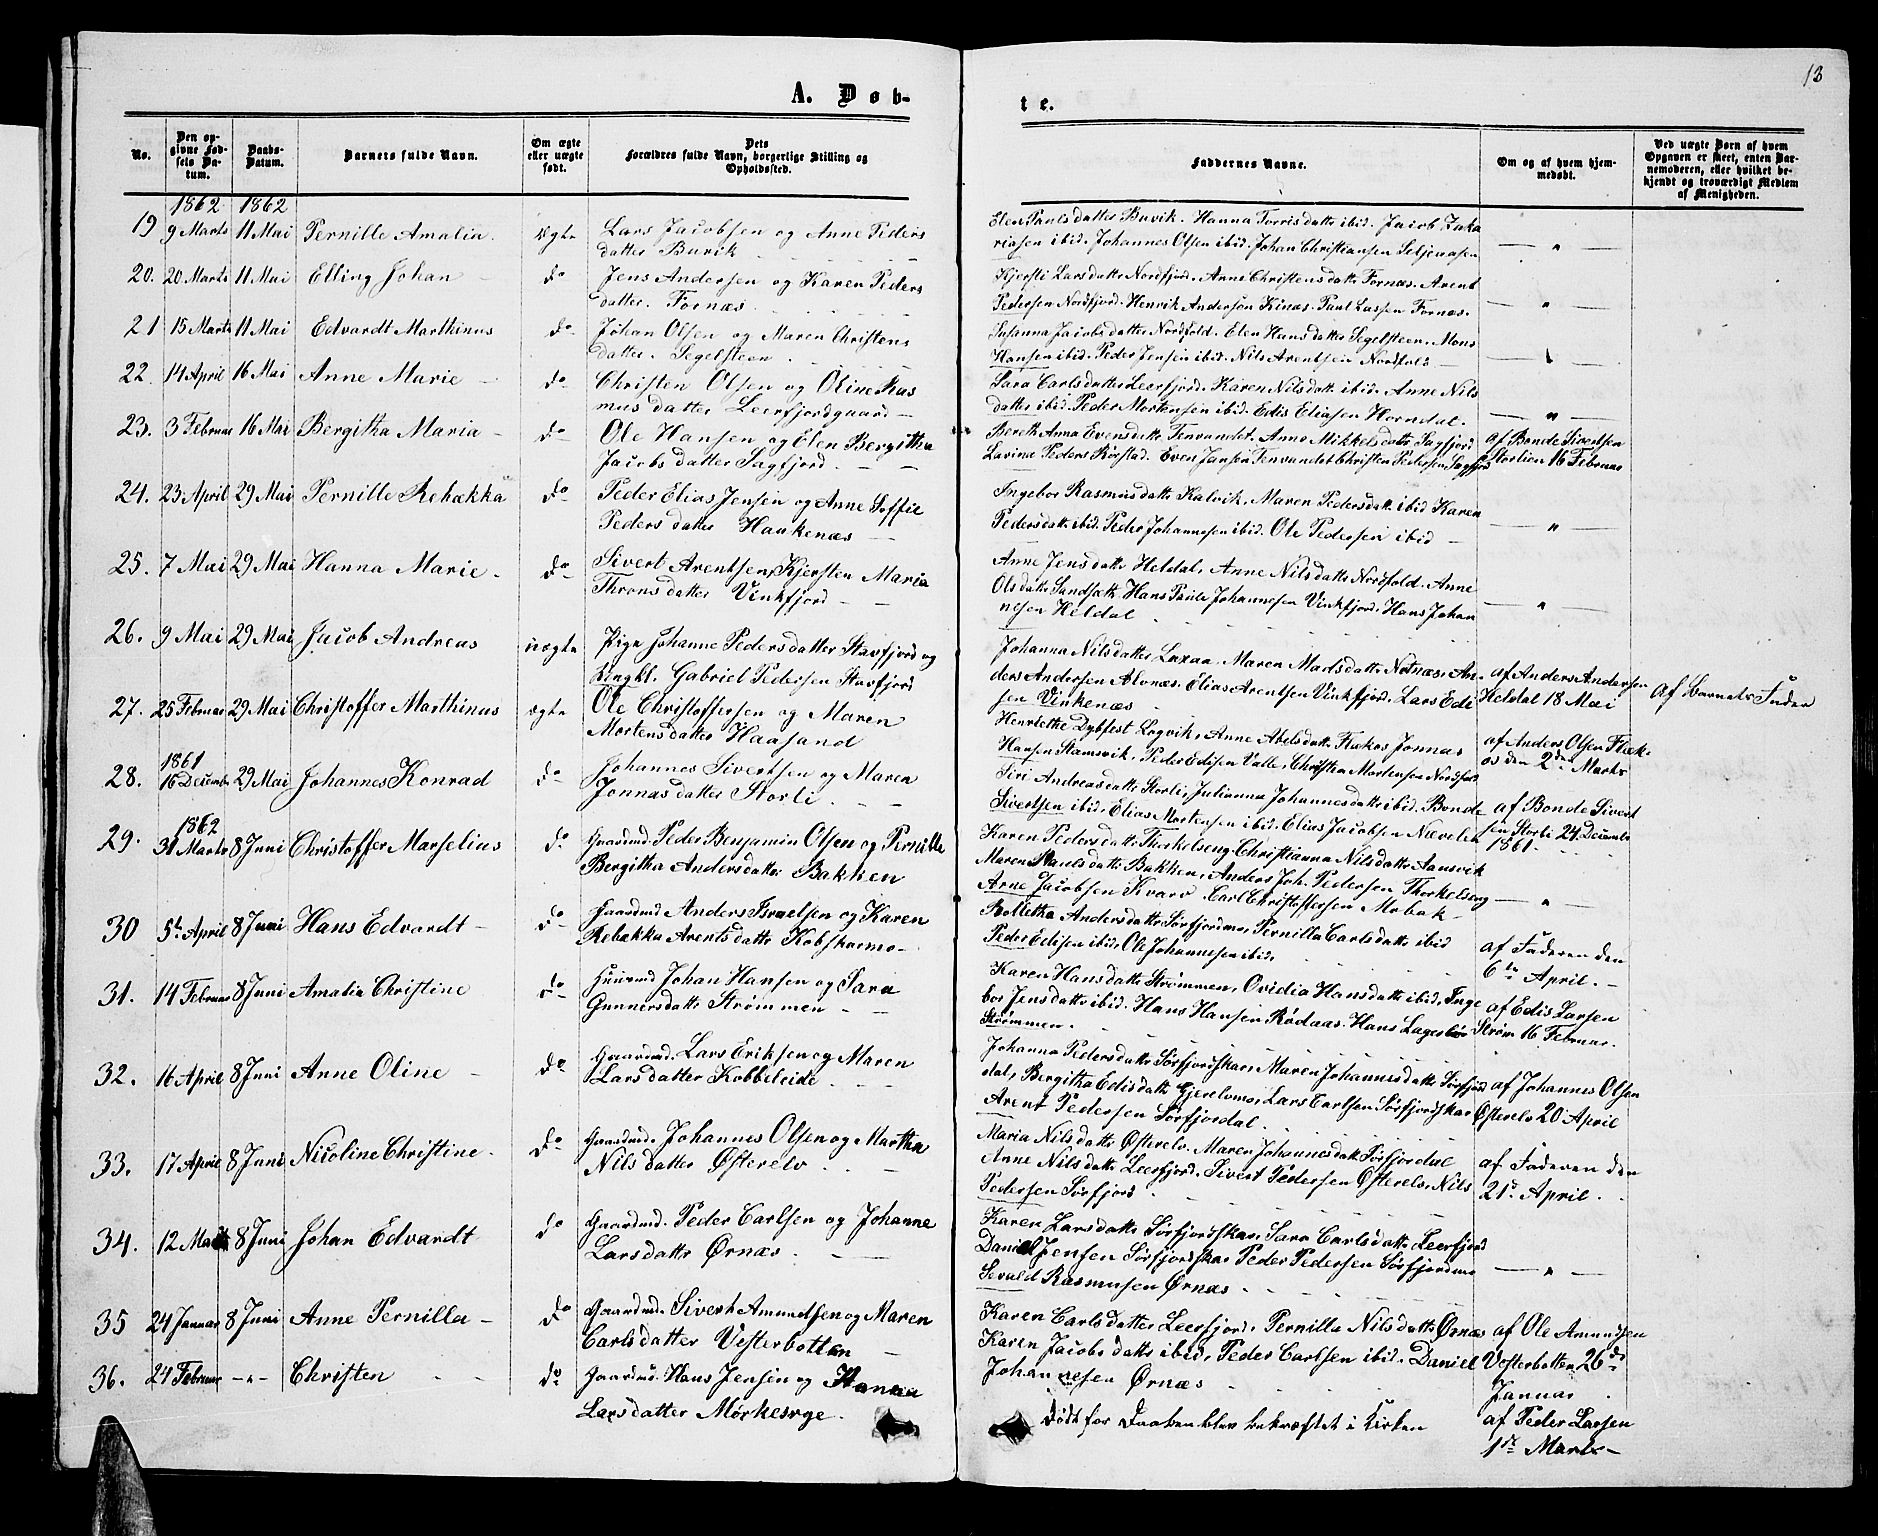 13
A. Døb-
te.
No.
Den op-
givne Fød-
sels Da-
tum.
Daabs-
Datum.
Barnets fulde Navn.
Om ægte
eller uægte
født.
Dets
Forældres fulde Navn, borgerlige Stilling og
Opholdssted.
Faddernes Navne.
Om og af hvem hjem-
medøbt.
Ved uægte Børn af hvem
Opgaven er skeet, enten Bar-
nemoderen, eller hvilket be-
kjendt og troværdigt Medlem
af Menigheden.
1862 1862
19 9 Marts 11 Mai Pernille Amalia. ægte Lars Jacobsen og Anne Peders
datter Buvik
Elen Paulsdatter Buvik. Hanna Torrisdatte ibid. Jacob Zaka
riasen ibid. Johannes Olsen ibid. Johan Christiansen
20. 20 Marts 11 Mai Elling Johan do Jens Andersen og Karen Peders
datter. Fornæs
Kjersti Larsdatte Nordfjord. Anne Christensdatte Fornæs. Arent
Pedersen Nordfjord. Henrik Andersen Kinæs. Paul Larsen Fornæs.
21 15 Marts 11 Mai Edvardt Marthinus do Johan Olsen og Maren Christens
datter. Segelsteen
Susanna Jacobsdatter Nordfold. Elen Hansdatter Segelsteen. Mons
Hansen ibid. Peder Jensen ibid. Nils Arentsen Nordfold
22. 14 April 16 Mai Anne Marie do Christen Olsen og Oline Ras
musdatter Leerfjordgaard
Sara Carlsdatter Leerfjord. Karen Nilsdatte ibid. Anne Nils
datter ibid. Peder Mortensen ibid. Edis Eliasen Horndal.
23. 3 Februar 16 Mai Bergitha Maria do Ole Hansen og Elen Bergitha
Jacobsdatter Sagfjord
Bereth Anna Evensdatte Tenvandet. Anne Mikkelsdatte Sagfjord
Lavina Peders Rørstad. Even Jansen Tenvandet Christen Pedersen Sagfjord
af Bonde Sivertsen
Storlien 16 Februar
24. 23 April 29 Mai Pernille Rebækka do Peder Elias Jensen og Anne Soffie
Pedersdatter Haukenæs
Ingebor Rasmusdatte Kalvik, Maren Pedersdatte ibid Karen
Pedersdatte ibid. Peder Johannesen ibid. Ole Pedersen ibid
25. 7 Mai 29 Mai Hanna Marie do Sivert Arentsen, Kjersten Maria
Thronsdatter Vinkfjord
Anne Jensdatte Heldal, Anne Nilsdatte Nordfold. Anne
Olsdatte Sandsætte Hans Johannesen Vinkfjord. Hans Johan
nesen Heldal
26. 9 Mai 29 Mai Jacob Andreas uægte Pige Johanne Pedersdatter Stavfjord og
Ungkl. Gabriel Pedersen Stavfjord
Johanna Nilsdatter Laxaa. Maren Madsdatte Notnæs. An
ders Andersen Alvnæs. Elias Arentsen Vinkfjord. Lars Edi
sen Vinkenæs
af Anders Andersen
Heldal 18 Mai
af Barnets Fader
27. 25 Februar 29 Mai Christoffer Marthinus ægte Ole Christoffersen og Maren
Mortensdatter Haasand
Henriethe Dybfest Løgvik, Anne Abelsdatte Flækøs Jonnas
Hansen Stamsvik, Peder Edisen Valle, Christen Mortensen Nordfold
af Anders Olsen Flæk-
øs den 2den Marts
1861
28. 16 December 29 Mai Johannes Konrad do Johannes Sivertsen og Maren
Jonnasdatter Storli
Siri Andreasdatte Storli, Julianna Johannesdatte ibid. Bonde
Sivertsen ibid. Elias Mortensen ibid. Elias Jacobsen Nævelen
af Bonde Sivert
sen Storli 24 December
1861
1862
29. 31 Marts 8 Juni Christoffer Marselius do Gaardmd Peder Benjamin Olsen og Pernille
Bergitha Andersdatte Bakken
Karen Pedersdatte Thorkelseng Christianna Nilsdatte Aansvik
Maren Paulsdatte Bakken, Anders Joh. Pedersen Thorkelseng
Arne Jacobsen Kvarv Carl Christoffersen Mobak
30 5te April 8 Juni Hans Edvardt do Gaardmd Anders Israelsen og Karen
Rebækka Arentsdatte Kobskarmo
Bolletha Andersdatte Sørfjordmo, Pernilla Carlsdatte ibid
Peder Edisen ibid, Ole Johannesen ibid.
af Faderen den
6te April.
31. 14 Februar 8 Juni Amalia Christine do Huusmd Johan Hansen og Sara
Gunnersdatte Strømmen
Karen Hansdatte Strømmen, Ovidia Hansdatte ibid, Inge
bor Jensdatte ibid. Hans Hansen Rødaas. Hans
Strømmen.
af Edis Larsen
Strøm 16 Februar.
32. 16 April 8 Juni Anne Oline do Gaardmd. Lars Eriksen og Maren
Larsdatter Kobbeleide
Johanna Pedersdatte Sørfjordskar, Maren Johannesdatte Sørfjord
dal, Bergitha Edisdatte Gjerelvmo, Lars Carlsen Sørfjordskar
Arent Pedersen Sørfjordal
af Johannes Olsen
Østerelv 20 April
33. 17 April 8 Juni Nicoline Christine do Gaardmd. Johannes Olsen og Martha
Nilsdatter Østerelv
Maria Nilsdatte Østerelv. Maren Johannesdatte Sørfjordal
Anne Nilsdatte Leerfjord. Sivert Pedersen Østerelv, Nils
Pedersen Sørfjord
af Faderen den
21de April
34. 12 Marts 8 Juni Johan Edvardt do Gaardmd. Peder Carlsen og Johanne
Larsdatte Ørnæs
Karen Larsdatte Sørfjordskar, Sara Carlsdatte Leerfjord
Daniel Jensen Sørfjordskar Peder Pedersen Sørfjordmo
Sevald Rasmusen Ørnæs
35 24 Januar 8 Juni Anne Pernilla do Gaardmd. Sivert Amundsen og Maren
Carlsdatter Vesterbotten
Karen Carlsdatter Leerfjord, Pernilla Nilsdatte Ørnæs
Karen Jacobsdatte ibid, Peder Carlsen ibid. Daniel
Johannesen Ørnæs
af Ole Amundsen
Vesterbotten 26de
Januar
36. 24 Februar Christen do Gaardmd. Hans Jensen og Hanna
Larsdatter Mørkesvge
Født før Daaben blev bekræftet i Kirken
af Peder Larsen
1ste Marts